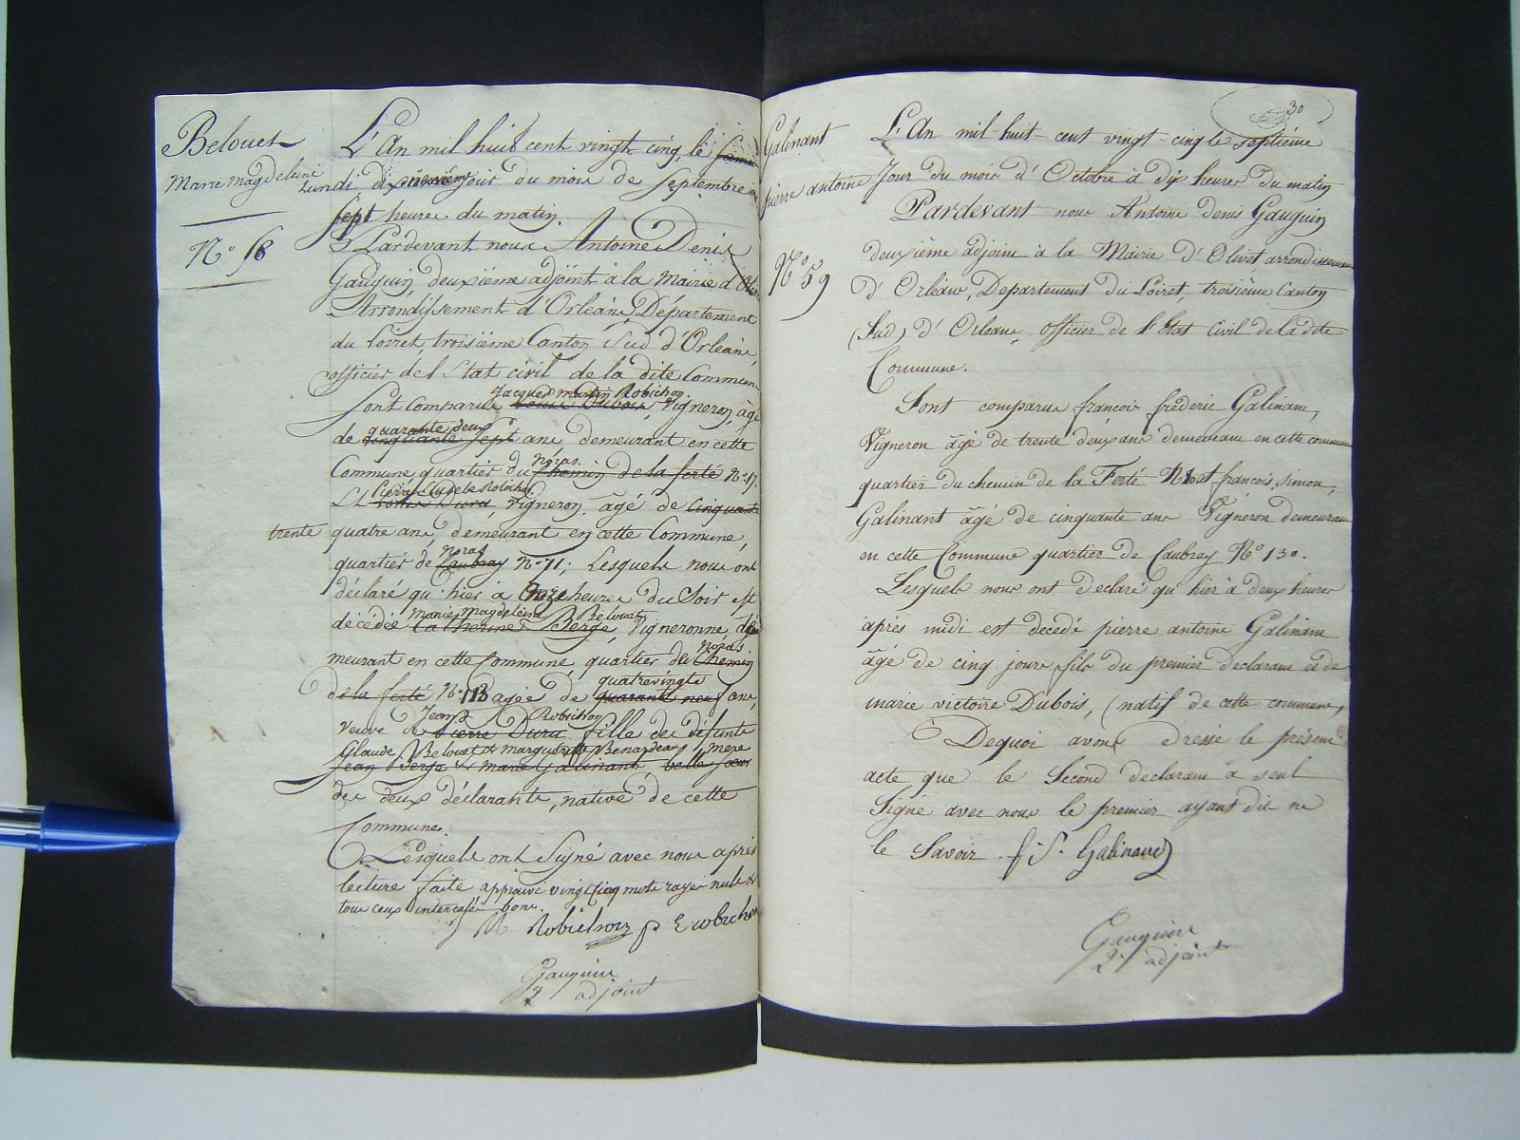 Belouet
Marie Magdeleine
N.o 58
L'An mil huit cent vingt cinq, le
Lundi dix neuvième jour du mois de Septembre
sept heures du matin.
Pardevant nous Antoine Denis
Gauguin, deuxième adjoint à la Mairie d'Ol
Arrondissement d'Orléans, Département
du Loiret, troisième Canton Sud d'Orléans,
officier de l'Etat civil de la dite Commune
Jacques martin Robichon
Sont comparus Vigneron, âgé
quarante deux
de cinquante sept ans demeurant en cette
Noras
Commune quartier du chemin de la ferté N.o 17.
Pierre Claude Robichon
Et Louis Dura, Vigneron, âgé de cinquante
trente quatre ans, demeurant en cette Commune,
Noras
quartier de Caubray N.o 71; Lesquels nous ont
déclaré qu'hier à Onze heures du Soir est
Marie Magdeleine Belouet
décédée Catherine Berge, Vigneronne, de
Noras
meurant en cette Commune, quartier du Chemin
quatrevingts
de la ferté N.o 113 agée de quarante neuf ans,
Jean Robichon
veuve de Pierre Dura fille de défunts
Glaude Belouet & marguerite Benardeau, mere
Jean Berge & marie Galinant, belle sœur
des deux déclarants, native de cette
Commune.
Lesquels ont Signé avec nous après
lecture faite approuvé vingt cinq mots rayés nuls &
tous ceux intercalés bons.
Robichon p Robichon
Gauguin
2 adjoint
30
Galinant
pierre antoine
N.o 59
L'An mil huit cent vingt cinq le septième
Jour du mois d'Octobre à dix heures du matin
Pardevant nous Antoine denis Gauguin
deuxième adjoint à la Mairie d'Olivet arrondissement
d'Orléans, Departement du Loiret, troisième Canton
(Sud) d'Orléans, officier de l'Etat Civil de la dite
Commune.
Sont comparus françois frédéric Galinant,
Vigneron âgé de trente deux ans demeurant en cette commune
quartier du chemin de la Ferté N.o et françois, simon,
Galinant âgé de cinquante ans Vigneron demeurant
en cette Commune quartier de Caubray N.o 130.
Lesquels nous ont declaré qu'hier à deux heures
après midi est decedé pierre antoine Galinant
âgé de cinq jours, fils du premier declarant et de
marie victoire Dubois, (natif de cette commune,
Dequoi avons dressé le présent
acte que le Second declarant a seul
Signé avec nous le premier ayant dit ne
le Savoir. f. S. Galinand
Gauguin
2. adjoint